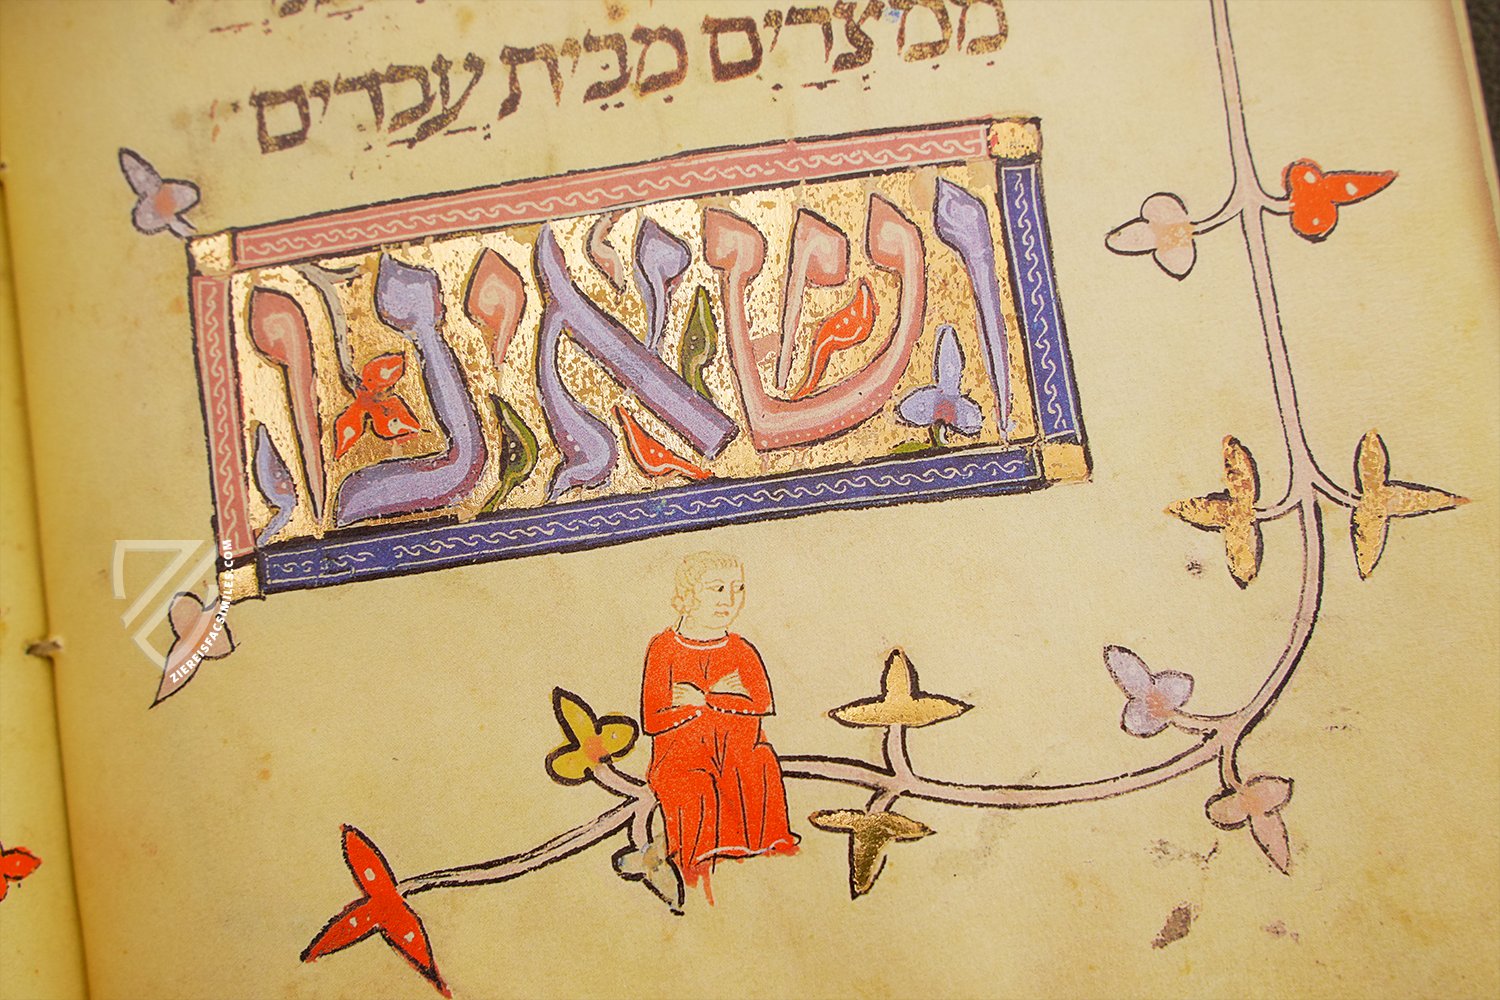 מִמִצְרַיִם מִבֵּית עֲבָדִים
ושאינו
ZIEREISFACSIMILES.COM